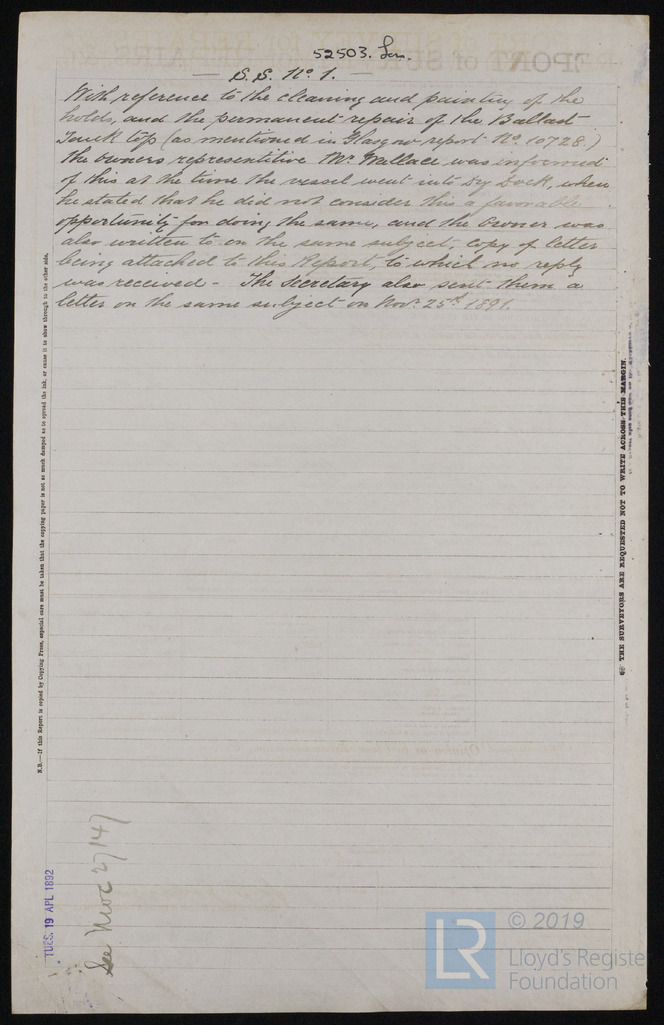 52503. Lon.
— S. S. No 1. —
With reference to the cleaning and painting of the
holds, and the permanent repair of the Ballast
Tank top (as mentioned in Glasgow report No. 10728.)
the owners representitive Mr. Wallace was informed
of this at the time the vessel went into Dry Dock, when
he stated that he did not consider this a favorable
opportunity for doing the same, and the Owner was
also written to on the same subject, copy of letter
being attached to this Report, to which no reply
was received - The Secretary also sent them a
letter on the same subject on Novr. 25th 1891.
N.B.—If this Report is copied by Copying Press, especial care must be taken that the copying paper is not so much damped as to spread the ink, or cause it to show through to the other side.
THE SURVEYORS ARE REQUESTED NOT TO WRITE ACROSS THIS MARGIN.
TUES. 19 APL 1892
See
© 2019
LR
Lloyd's Register
Foundation